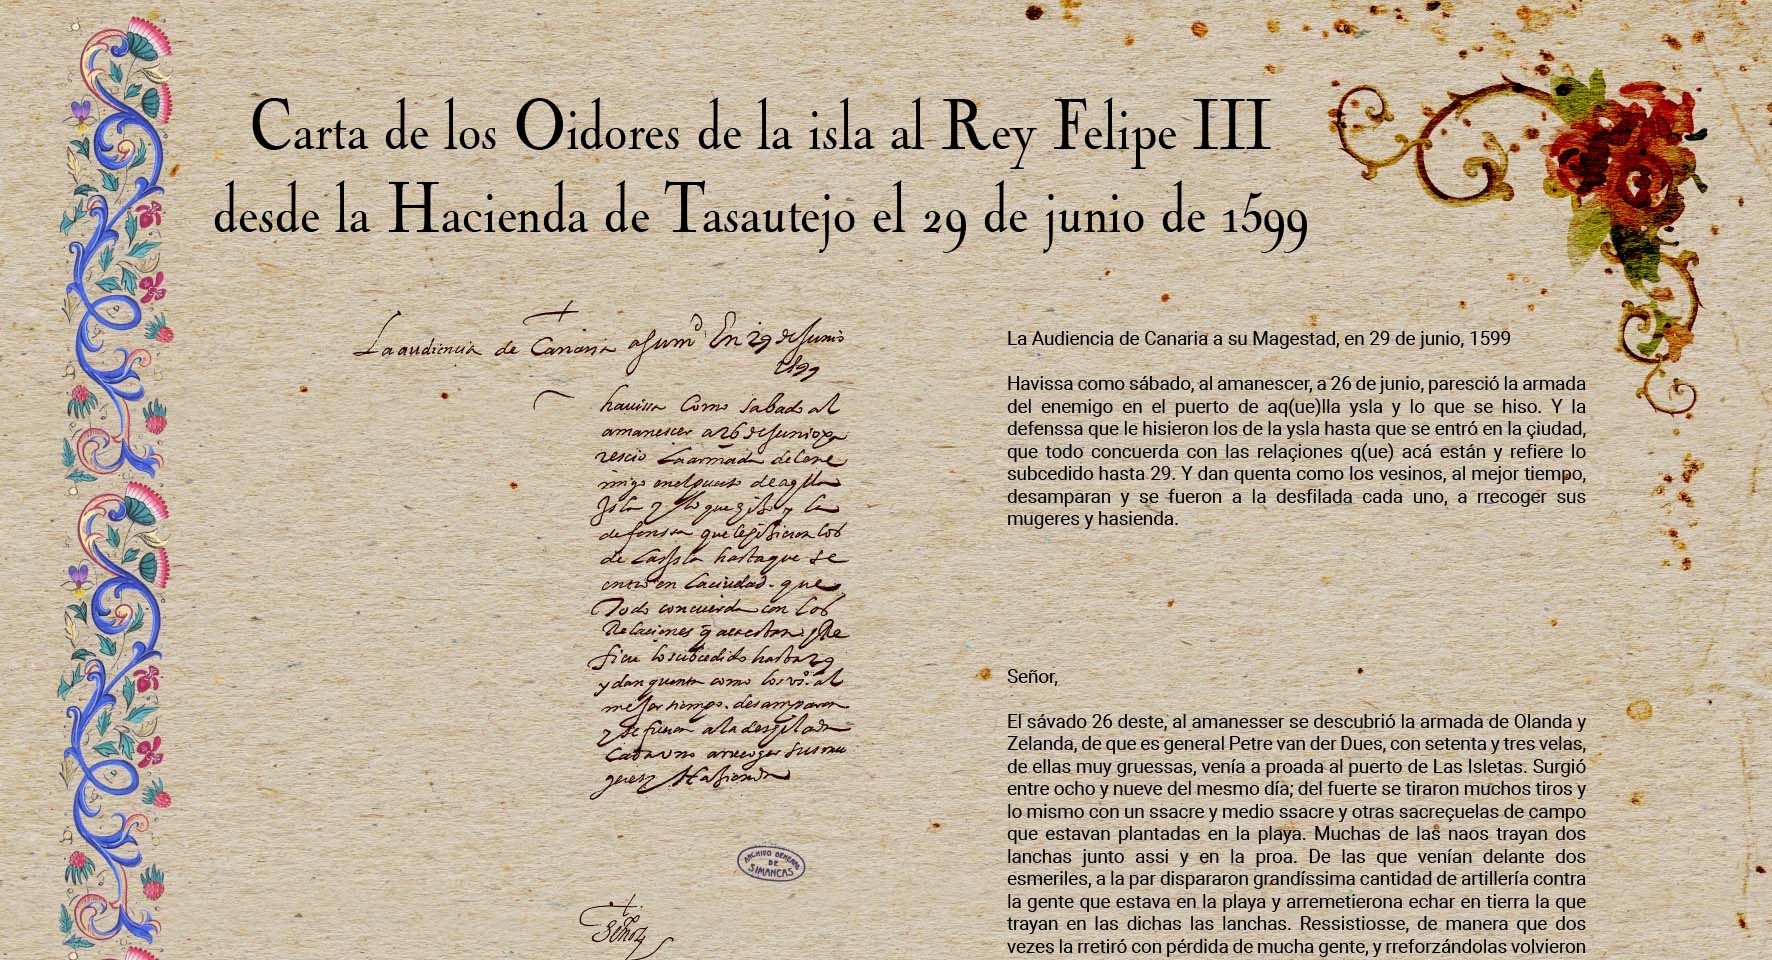 Carta de los Oidores de la isla al Rey Felipe III
desde la Hacienda de Tasautejo el 29 de junio de 1599
La audiencia de Canaria a su md En 29 de Junio
1599
havissa Como sabado al
amanescer a 26 de Junio pa
rescio La armada del ene
migo en el puerto de aqlla
Isla y lo que se hiso y la
defenssa que le hisieron los
de La ysla hasta que se
entro en La ciudad. que
Todo concuerda con Las
Relaciones q aca estan y Re
fiere lo subcedido hasta 29
y dan quenta como los vos. al
mejor tiempo. desamparan
y se fueron a la desfilada
Cada uno a rrecoger sus mu
geres y Hasienda
ARCHIVO GENERAL
DE
SIMANCAS
Señor
La Audiencia de Canaria a su Magestad, en 29 de junio, 1599
Havissa como sábado, al amanescer, a 26 de junio, paresció la armada
del enemigo en el puerto de aq(ue)lla ysla y lo que se hiso. Y la
defenssa que le hisieron los de la ysla hasta que se entró en la çiudad,
que todo concuerda con las relaçiones q(ue) acá están y refiere lo
subcedido hasta 29. Y dan quenta como los vesinos, al mejor tiempo,
desamparan y se fueron a la desfilada cada uno, a rrecoger sus
mugeres y hasienda.
Señor,
El sávado 26 deste, al amanesser se descubrió la armada de Olanda y
Zelanda, de que es general Petre van der Dues, con setenta y tres velas,
de ellas muy gruessas, venía a proada al puerto de Las Isletas. Surgió
entre ocho y nueve del mesmo día; del fuerte se tiraron muchos tiros y
lo mismo con un ssacre y medio ssacre y otras sacreçuelas de campo
que estavan plantadas en la playa. Muchas de las naos trayan dos
lanchas junto assi y en la proa. De las que venían delante dos
esmeriles, a la par dispararon grandíssima cantidad de artillería contra
la gente que estava en la playa y arremetierona echar en tierra la que
trayan en las dichas las lanchas. Ressistiosse, de manera que dos
vezes la rretiró con pérdida de mucha gente, y rreforzándolas volvieron